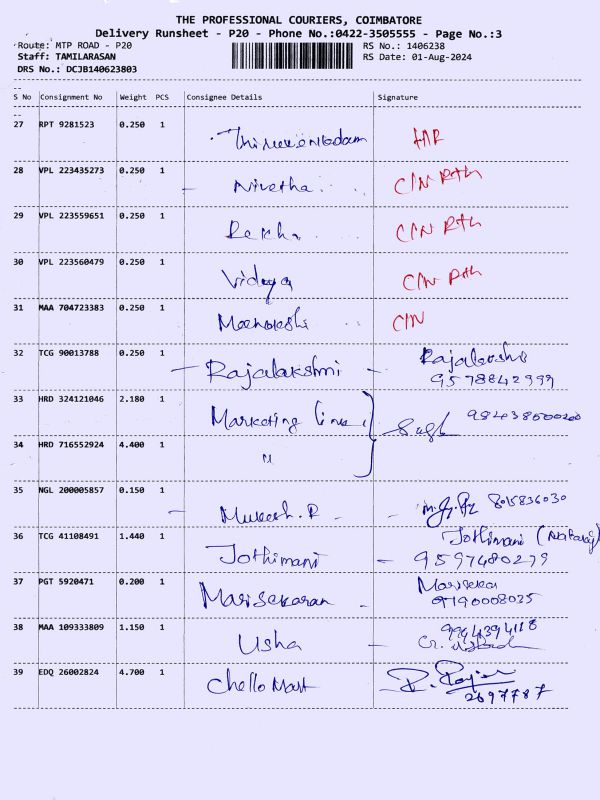 THE PROFESSIONAL COURIERS, COIMBATORE
Delivery Runsheet - P20 - Phone No.:0422-3505555 - Page No.:3
Route: MTP ROAD - P20 RS No.: 1406238
Staff: TAMILARASAN RS Date: 01-Aug-2024
DRS No.: DCJB140623803
S No Consignment No Weight PCS Consignee Details Signature
27 RPT 9281523 0.250 1
28 VPL 223435273 0.250 1 Nivetha C/N Rth
29 VPL 223559651 0.250 1 Rekha C/N Rth
30 VPL 223560479 0.250 1 Vidhya C/N Rth
31 MAA 704723383 0.250 1 Meenakshi C/N
32 TCG 90013788 0.250 1 - Rajalakshmi - Rajalakshmi
9578842999
33 HRD 324121046 2.180 1 Marketing line
34 HRD 716552924 4.400 1 "
35 NGL 200005857 0.150 1 - Mukesh.R - 8015836030
36 TCG 41108491 1.440 1 Jothimani - Jothimani
9597480279
37 PGT 5920471 0.200 1 Marisekaran - Marisekar
9190008035
38 MAA 109333809 1.150 1 Usha - 9944394118
39 EDQ 26002824 4.700 1 Chello Mart
2697787